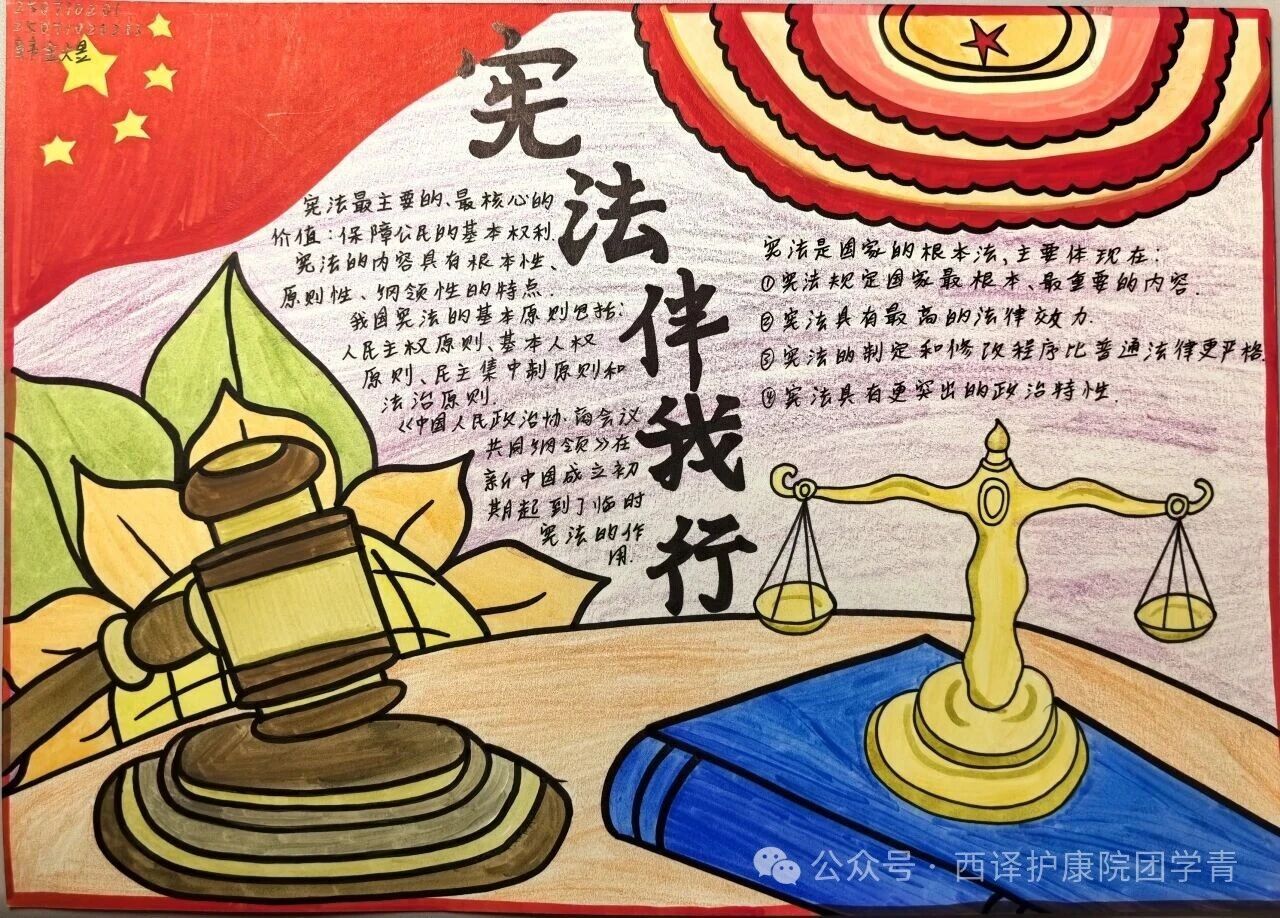 2507010201
韩金煜
宪法伴我行
宪法最主要的、最核心的
价值:保障公民的基本权利.
宪法的内容具有根本性、
原则性、纲领性的特点.
我国宪法的基本原则包括:
人民主权原则、基本人权
原则、民主集中制原则和
法治原则.
《中国人民政治协商会议
共同纲领》在
新中国成立初
期起到了临时
宪法的作
用.
宪法是国家的根本法,主要体现在:
①宪法规定国家最根本、最重要的内容.
②宪法具有最高的法律效力.
③宪法的制定和修改程序比普通法律更严格.
④宪法具有更突出的政治特性.
公众号·西译护康院团学青